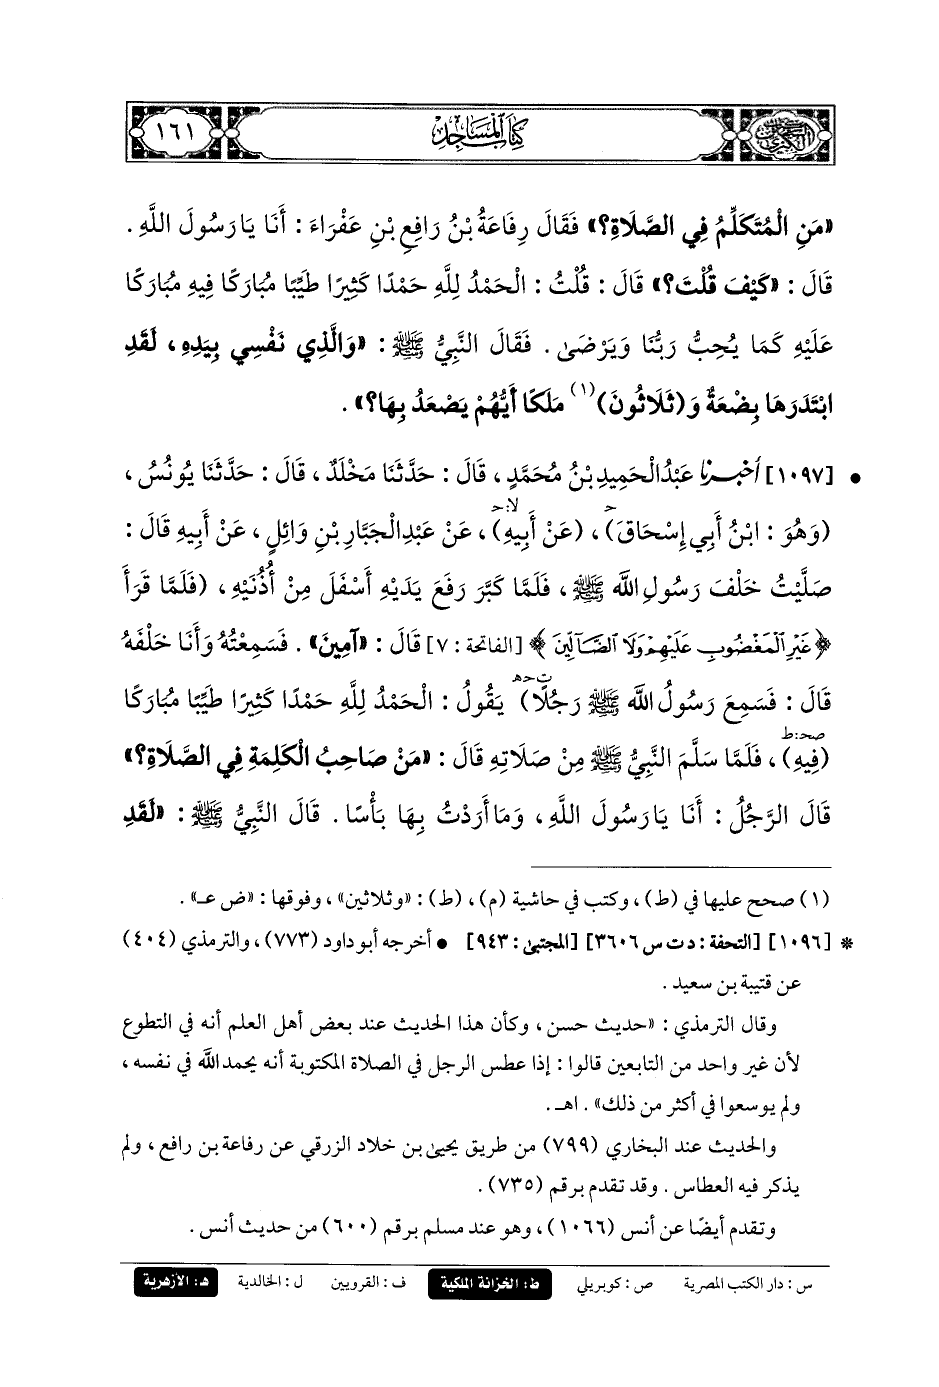 السنن الكبرى
كتاب المساجد
١٦١
«مَنِ الْمُتَكَلِّمُ فِي الصَّلَاةِ؟» فَقَالَ رِفَاعَةُ بْنُ رَافِعِ بْنِ عَفْرَاءَ : أَنَا يَا رَسُولَ اللَّهِ .
قَالَ : «كَيْفَ قُلْتَ؟» قَالَ : قُلْتُ : الْحَمْدُ لِلَّهِ حَمْدًا كَثِيرًا طَيِّبًا مُبَارَكًا فِيهِ مُبَارَكًا
عَلَيْهِ كَمَا يُحِبُّ رَبُّنَا وَيَرْضَى . فَقَالَ النَّبِيُّ ﷺ : «وَالَّذِي نَفْسِي بِيَدِهِ ، لَقَدِ
ابْتَدَرَهَا بِضْعَةٌ وَ(ثَلَاثُونَ)(١) مَلَكًا أَيُّهُمْ يَصْعَدُ بِهَا؟» .
• [١٠٩٧] أخبرنا عَبْدُ الْحَمِيدِ بْنُ مُحَمَّدٍ ، قَالَ : حَدَّثَنَا مَخْلَدٌ ، قَالَ : حَدَّثَنَا يُونُسُ ،
(وَهُوَ : ابْنُ أَبِي إِسْحَاقَ) ، (عَنْ أَبِيهِ) ، عَنْ عَبْدِ الْجَبَّارِ بْنِ وَائِلٍ ، عَنْ أَبِيهِ قَالَ :
صَلَّيْتُ خَلْفَ رَسُولِ اللَّه ﷺ ، فَلَمَّا كَبَّرَ رَفَعَ يَدَيْهِ أَسْفَلَ مِنْ أُذُنَيْهِ ، (فَلَمَّا قَرَأَ
﴿غَيْرِ الْمَغْضُوبِ عَلَيْهِمْ وَلَا الضَّالِّينَ﴾ [الفاتحة : ٧] قَالَ : «آمِينَ» . فَسَمِعْتُهُ وَأَنَا خَلْفَهُ
قَالَ : فَسَمِعَ رَسُولُ اللَّه ﷺ رَجُلًا) يَقُولُ : الْحَمْدُ لِلَّهِ حَمْدًا كَثِيرًا طَيِّبًا مُبَارَكًا
(فِيهِ) ، فَلَمَّا سَلَّمَ النَّبِيُّ ﷺ مِنْ صَلَاتِهِ قَالَ : «مَنْ صَاحِبُ الْكَلِمَةِ فِي الصَّلَاةِ؟»
قَالَ الرَّجُلُ : أَنَا يَا رَسُولَ اللَّهِ ، وَمَا أَرَدْتُ بِهَا بَأْسًا. قَالَ النَّبِيُّ ﷺ : «لَقَدِ
(١) صحح عليها في (ط) ، وكتب في حاشية (م) ، (ط) : «وثلاثين» ، وفوقها : «ض عـ» .
* [١٠٩٦] [التحفة : د ت س ٣٦٠٦] [المجتبى : ٩٤٣] • أخرجه أبو داود (٧٧٣) ، والترمذي (٤٠٤)
عن قتيبة بن سعيد .
وقال الترمذي : «حديث حسن ، وكأن هذا الحديث عند بعض أهل العلم أنه في التطوع
لأن غير واحد من التابعين قالوا : إذا عطس الرجل في الصلاة المكتوبة أنه يحمد الله في نفسه ،
ولم يوسعوا في أكثر من ذلك» . اهـ .
والحديث عند البخاري (٧٩٩) من طريق يحيى بن خلاد الزرقي عن رفاعة بن رافع ، ولم
يذكر فيه العطاس . وقد تقدم برقم (٧٣٥) .
وتقدم أيضًا عن أنس (١٠٦٦) ، وهو عند مسلم برقم (٦٠٠) من حديث أنس .
س : دار الكتب المصرية ص : كوبريلي ط : الخزانة الملكية ف : القرويين ل : الخالدية هـ : الأزهرية